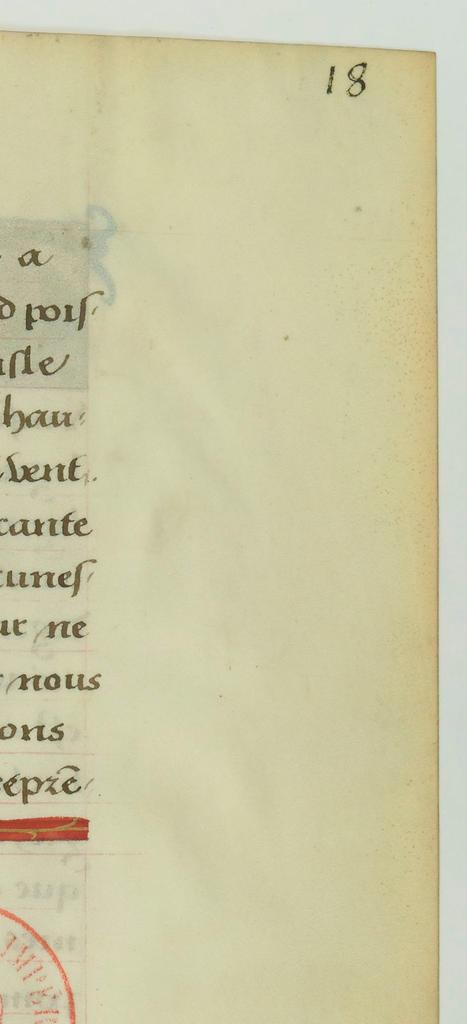 18
a
d pois
isle
hau
vent
cante
tunes
ur ne
nous
ons
reprē
IMPÉ